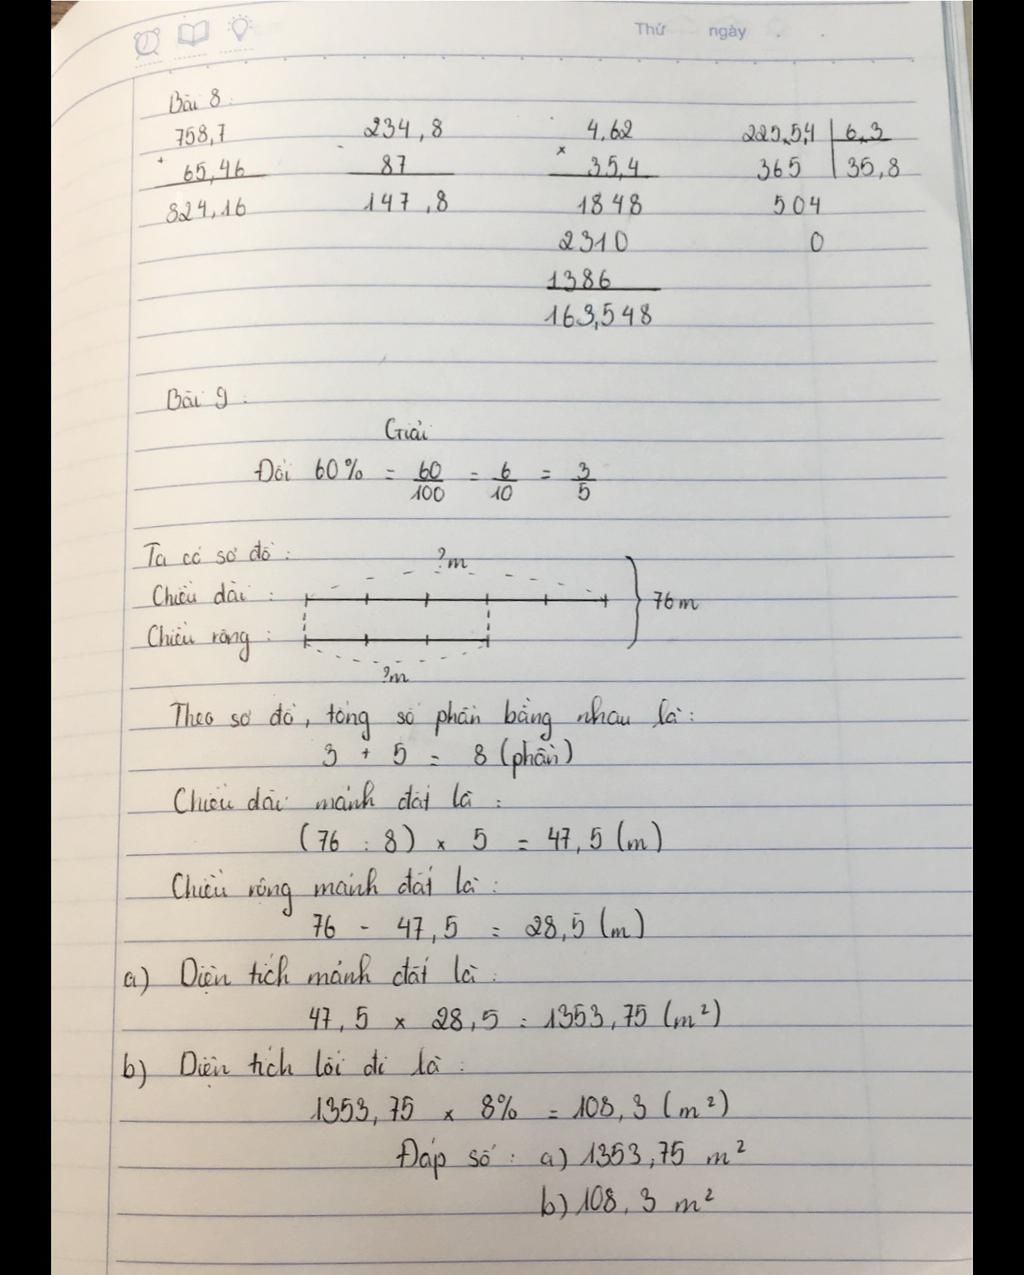 Thứ ngày
Bài 8:
758,7 234,8 4,62 225,54 | 6,3
+ 65,46 - 87 x 35,4 365 | 35,8
824,16 147,8 1848 504
2310 0
1386
163,548
Bài 9:
Giải
Đổi 60% = 60/100 = 6/10 = 3/5
Ta có sơ đồ:
?m
Chiều dài : 76m
Chiều rộng :
?m
Theo sơ đồ, tổng số phần bằng nhau là:
3 + 5 = 8 (phần)
Chiều dài mảnh đất là :
(76 : 8) x 5 = 47,5 (m)
Chiều rộng mảnh đất là :
76 - 47,5 = 28,5 (m)
a) Diện tích mảnh đất là :
47,5 x 28,5 = 1353,75 (m²)
b) Diện tích lối đi là :
1353,75 x 8% = 108,3 (m²)
Đáp số : a) 1353,75 m²
b) 108,3 m²